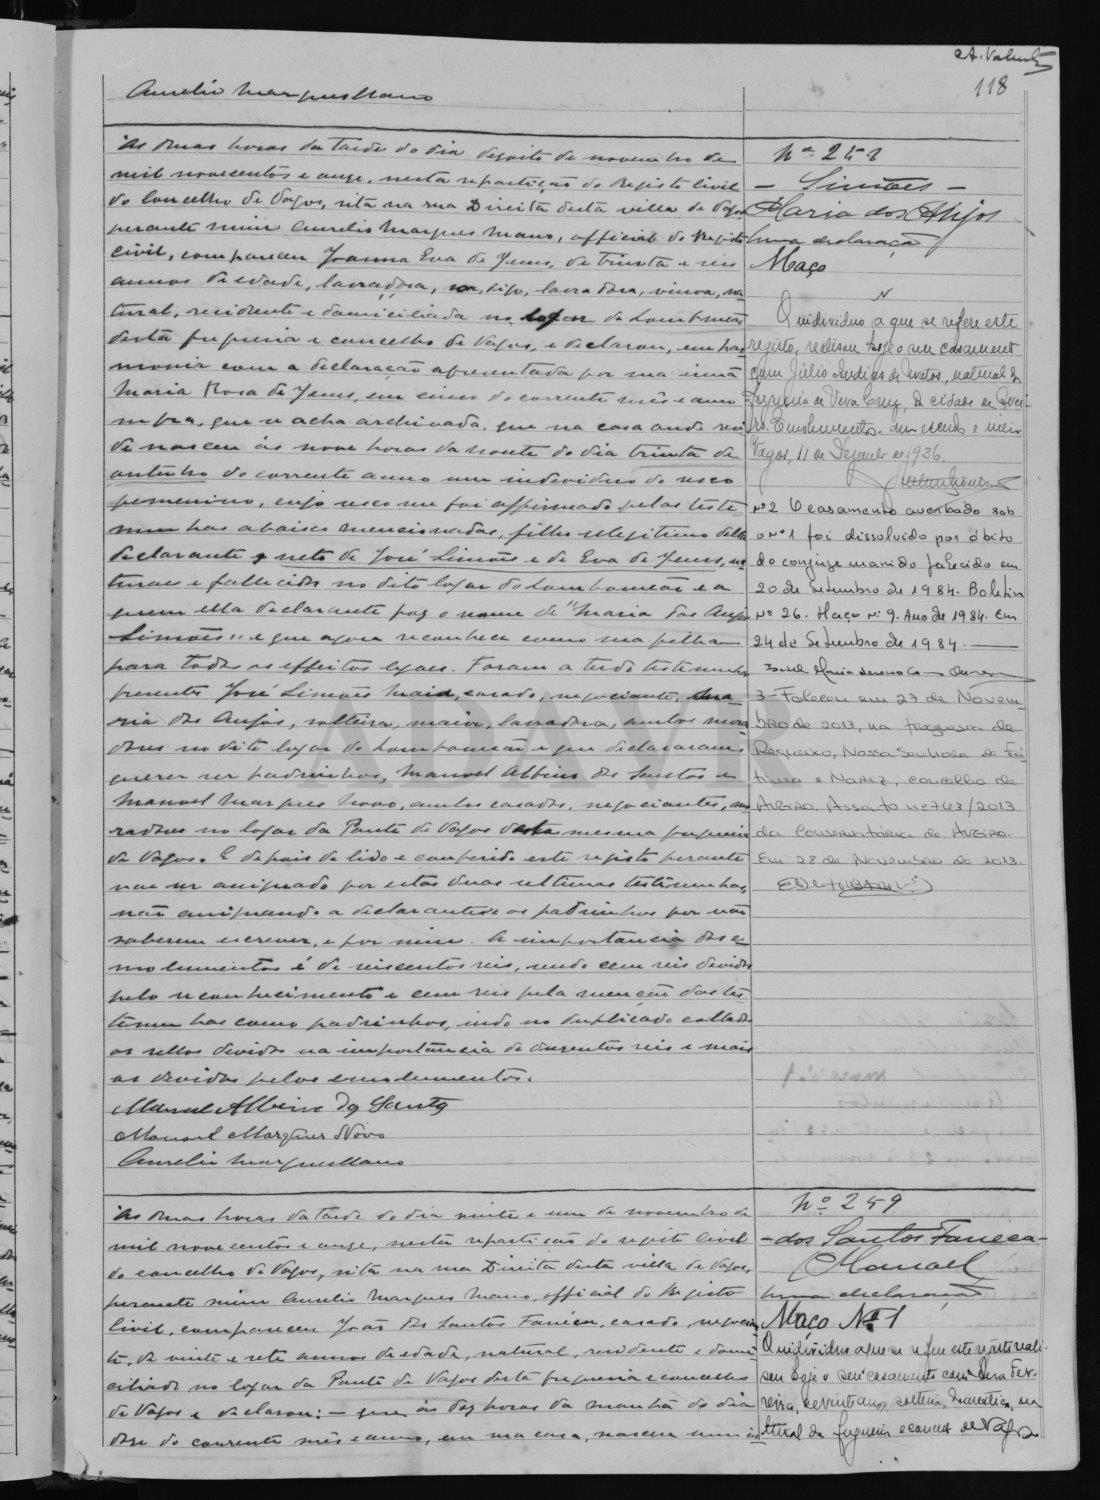 A. Valente
118
Aurelio Marques Mano
Às duas horas da tarde do dia dezoito de novembro de
mil novecentos e onze, nesta repartição do Registo Civil
do concelho de Vagos, sita na rua Direita desta villa de Vagos,
perante mim Aurelio Marques Mano, official do Registo
Civil, compareceu Joanna Eva de Jesus, de trinta e seis
annos de edade, lavradora, digo, lavradora, viuva, na
tural, residente e domiciliada no logar de Lombomeão
desta freguesia e concelho de Vagos, e declarou, em har
monia com a declaração apresentada por sua irmã
Maria Rosa de Jesus, em cinco do corrente mês e anno
supra, que se acha archivada, que na casa onde resi
de nasceu às nove horas da noute do dia trinta de
outubro do corrente anno um individuo do sexo
femenino, cujo sexo me foi affirmado pelas teste
munhas abaixo mencionadas, filho illegitimo della
declarante e neto de José Simões e de Eva de Jesus, na
turaes e fallecidos no dito logar do Lombomeão e a
quem ella declarante poz o nome de "Maria dos Anjos
Simões" e que agora reconhece como sua filha
para todos os effeitos legaes. Foram a tudo testemunhas
presentes José Simões Maia, casado, negociante, Ma
ria dos Anjos, solteira, maior, lavradora, ambos mora
dores no dito logar do Lombomeão e que declararam
querer ser padrinhos, Manuel Albino dos Santos e
Manuel Marques Novo, ambos casados, negociantes, mo
radores no logar da Ponte de Vagos desta mesma freguesia
de Vagos. E depois de lido e conferido este registo perante
vai ser assignado por estas duas ultimas testemunhas,
não assignando a declarante e os padrinhos por não
saberem escrever, e por mim. A importancia dos e
molumentos é de seiscentos reis, sendo cem reis devidos
pelo reconhecimento e cem reis pela menção das tes
temunhas como padrinhos, indo no duplicado collados
os sellos devidos na importância de duzentos reis e mais
os devidos pelos emolumentos.
Manuel Albino dos Santos
Manoel Marques Novo
Aurelio Marques Mano
Nº 258
- Simões -
Maria dos Anjos
uma declaração
Maço
O individuo a que se refere este
registo, realisou hoje o seu casamento
com Júlio de Matos, natural da
freguesia de Vera Cruz, da cidade de Avei-
ro. Emolumentos - um escudo e meio.
Vagos, 11 de Dezembro de 1936.
Nº 2 O casamento averbado sob
o nº 1 foi dissolvido por óbito
do conjuge marido falecido em
20 de Setembro de 1984. Boletim
Nº 26. Maço nº 9. Ano de 1984. Em
24 de Setembro de 1984.
3 - Faleceu em 27 de Novem-
bro de 2013, na freguesia de
Requeixo, Nossa Senhora de Fá-
tima e Nariz, concelho de
Aveiro. Assento nº 743/2013
da Conservatória de Aveiro.
Em 28 de Novembro de 2013.
ADAVR
Às duas horas da tarde do dia vinte e um de novembro de
mil novecentos e onze, nesta repartição do registo Civil
do concelho de Vagos, sita na rua Direita desta villa de Vagos,
perante mim Aurelio Marques Mano, official do Registo
Civil, compareceu João dos Santos Fanéca, casado, negocian
te, de vinte e sete annos de edade, natural, residente e domi
ciliado no logar da Ponte de Vagos desta freguesia e concelho
de Vagos e declarou: - que às dez horas da manhã do dia
doze do corrente mês e anno, em sua casa, nasceu um in
Nº 259
- dos Santos Faneca -
Manoel
uma declaração
Maço Nº 1
O individuo a que se refere este registo reali-
sou hoje o seu casamento com Fer-
reira, de vinte anos, solteira, domestica, na
tural da freguesia e concelho de Vagos